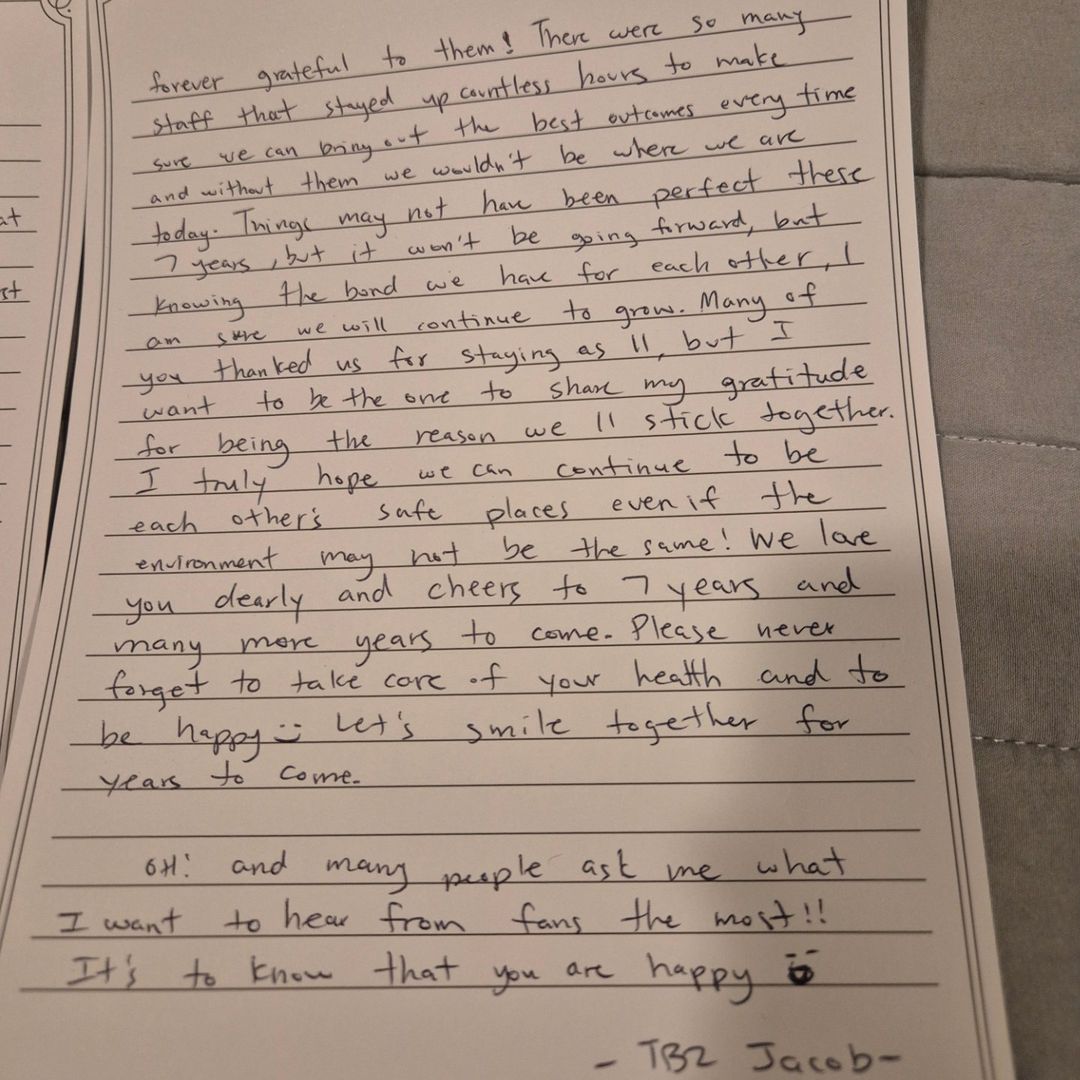 forever grateful to them! There were so many
staff that stayed up countless hours to make
sure we can bring out the best outcomes every time
and without them we wouldn't be where we are
today. Things may not have been perfect these
7 years, but it won't be going forward, but
knowing the bond we have for each other, I
am sure we will continue to grow. Many of
you thanked us for staying as 11, but I
want to be the one to share my gratitude
for being the reason we 11 stick together.
I truly hope we can continue to be
each other's safe places even if the
environment may not be the same! We love
you dearly and cheers to 7 years and
many more years to come. Please never
forget to take care of your health and to
be happy :) Let's smile together for
years to come.
OH! and many people ask me what
I want to hear from fans the most!!
It's to know that you are happy
- TBZ Jacob -